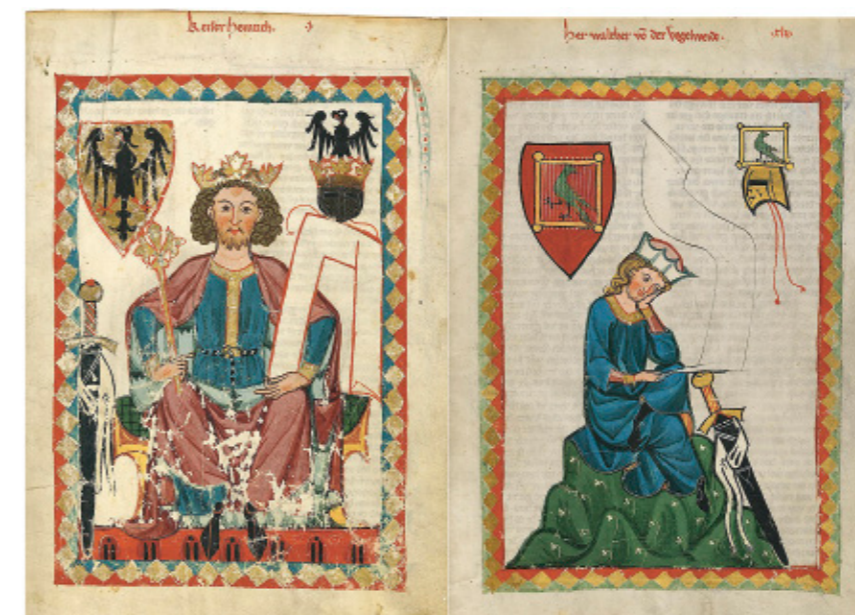 Keiser Heinrich. .j.
Her walther vō der Vogelweide. .xlv.